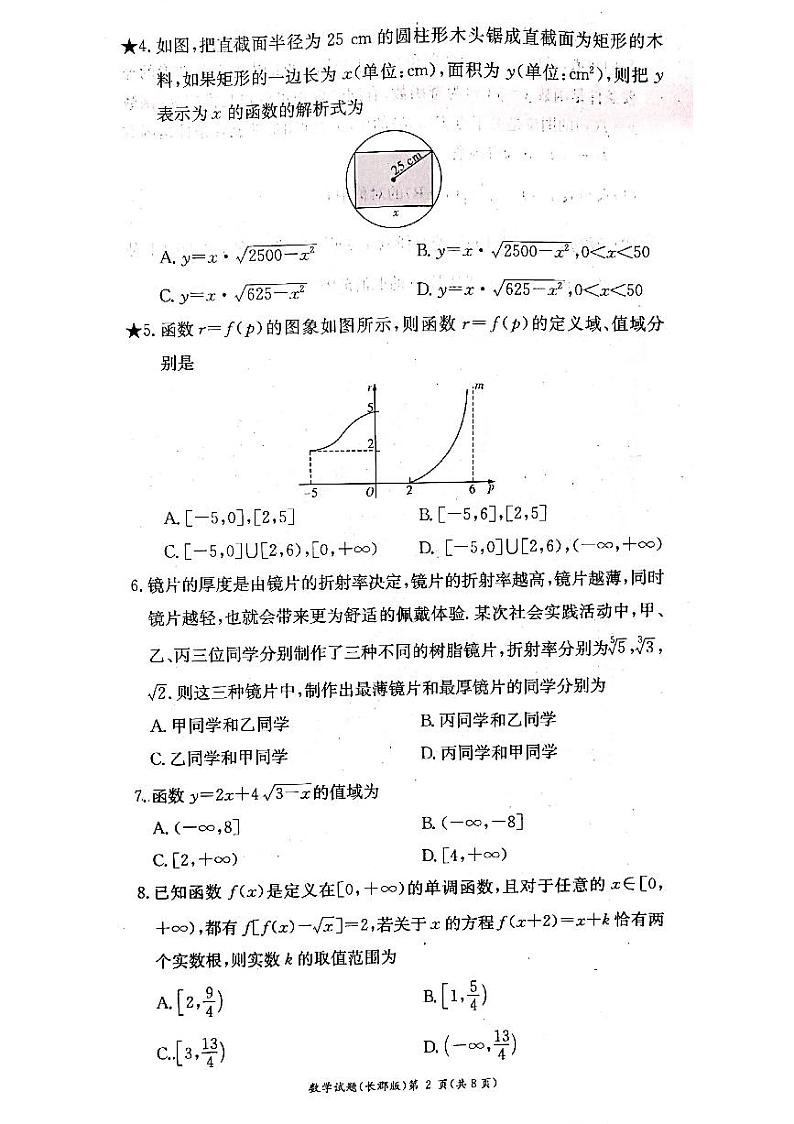 ★4. 如图,把直截面半径为 25 cm 的圆柱形木头锯成直截面为矩形的木
料,如果矩形的一边长为 x(单位:cm),面积为 y(单位:cm²),则把 y
表示为 x 的函数的解析式为
25 cm
x
A. y=x·√(2500-x²) B. y=x·√(2500-x²),0<x<50
C. y=x·√(625-x²) D. y=x·√(625-x²),0<x<50
★5. 函数 r=f(p)的图象如图所示,则函数 r=f(p)的定义域、值域分
别是
r m
5
2
-5 O 2 6 p
A. [-5,0],[2,5] B. [-5,6],[2,5]
C. [-5,0]∪[2,6),[0,+∞) D. [-5,0]∪[2,6),(-∞,+∞)
6. 镜片的厚度是由镜片的折射率决定,镜片的折射率越高,镜片越薄,同时
镜片越轻,也就会带来更为舒适的佩戴体验. 某次社会实践活动中,甲、
乙、丙三位同学分别制作了三种不同的树脂镜片,折射率分别为⁵√5,³√3,
√2. 则这三种镜片中,制作出最薄镜片和最厚镜片的同学分别为
A. 甲同学和乙同学 B. 丙同学和乙同学
C. 乙同学和甲同学 D. 丙同学和甲同学
7. 函数 y=2x+4√(3-x)的值域为
A. (-∞,8] B. (-∞,-8]
C. [2,+∞) D. [4,+∞)
8. 已知函数 f(x)是定义在[0,+∞)的单调函数,且对于任意的 x∈[0,
+∞),都有 f[f(x)-√x]=2,若关于 x 的方程 f(x+2)=x+k 恰有两
个实数根,则实数 k 的取值范围为
A. [2,9/4) B. [1,5/4)
C. [3,13/4) D. (-∞,13/4)
数学试题(长郡版)第 2 页(共 8 页)